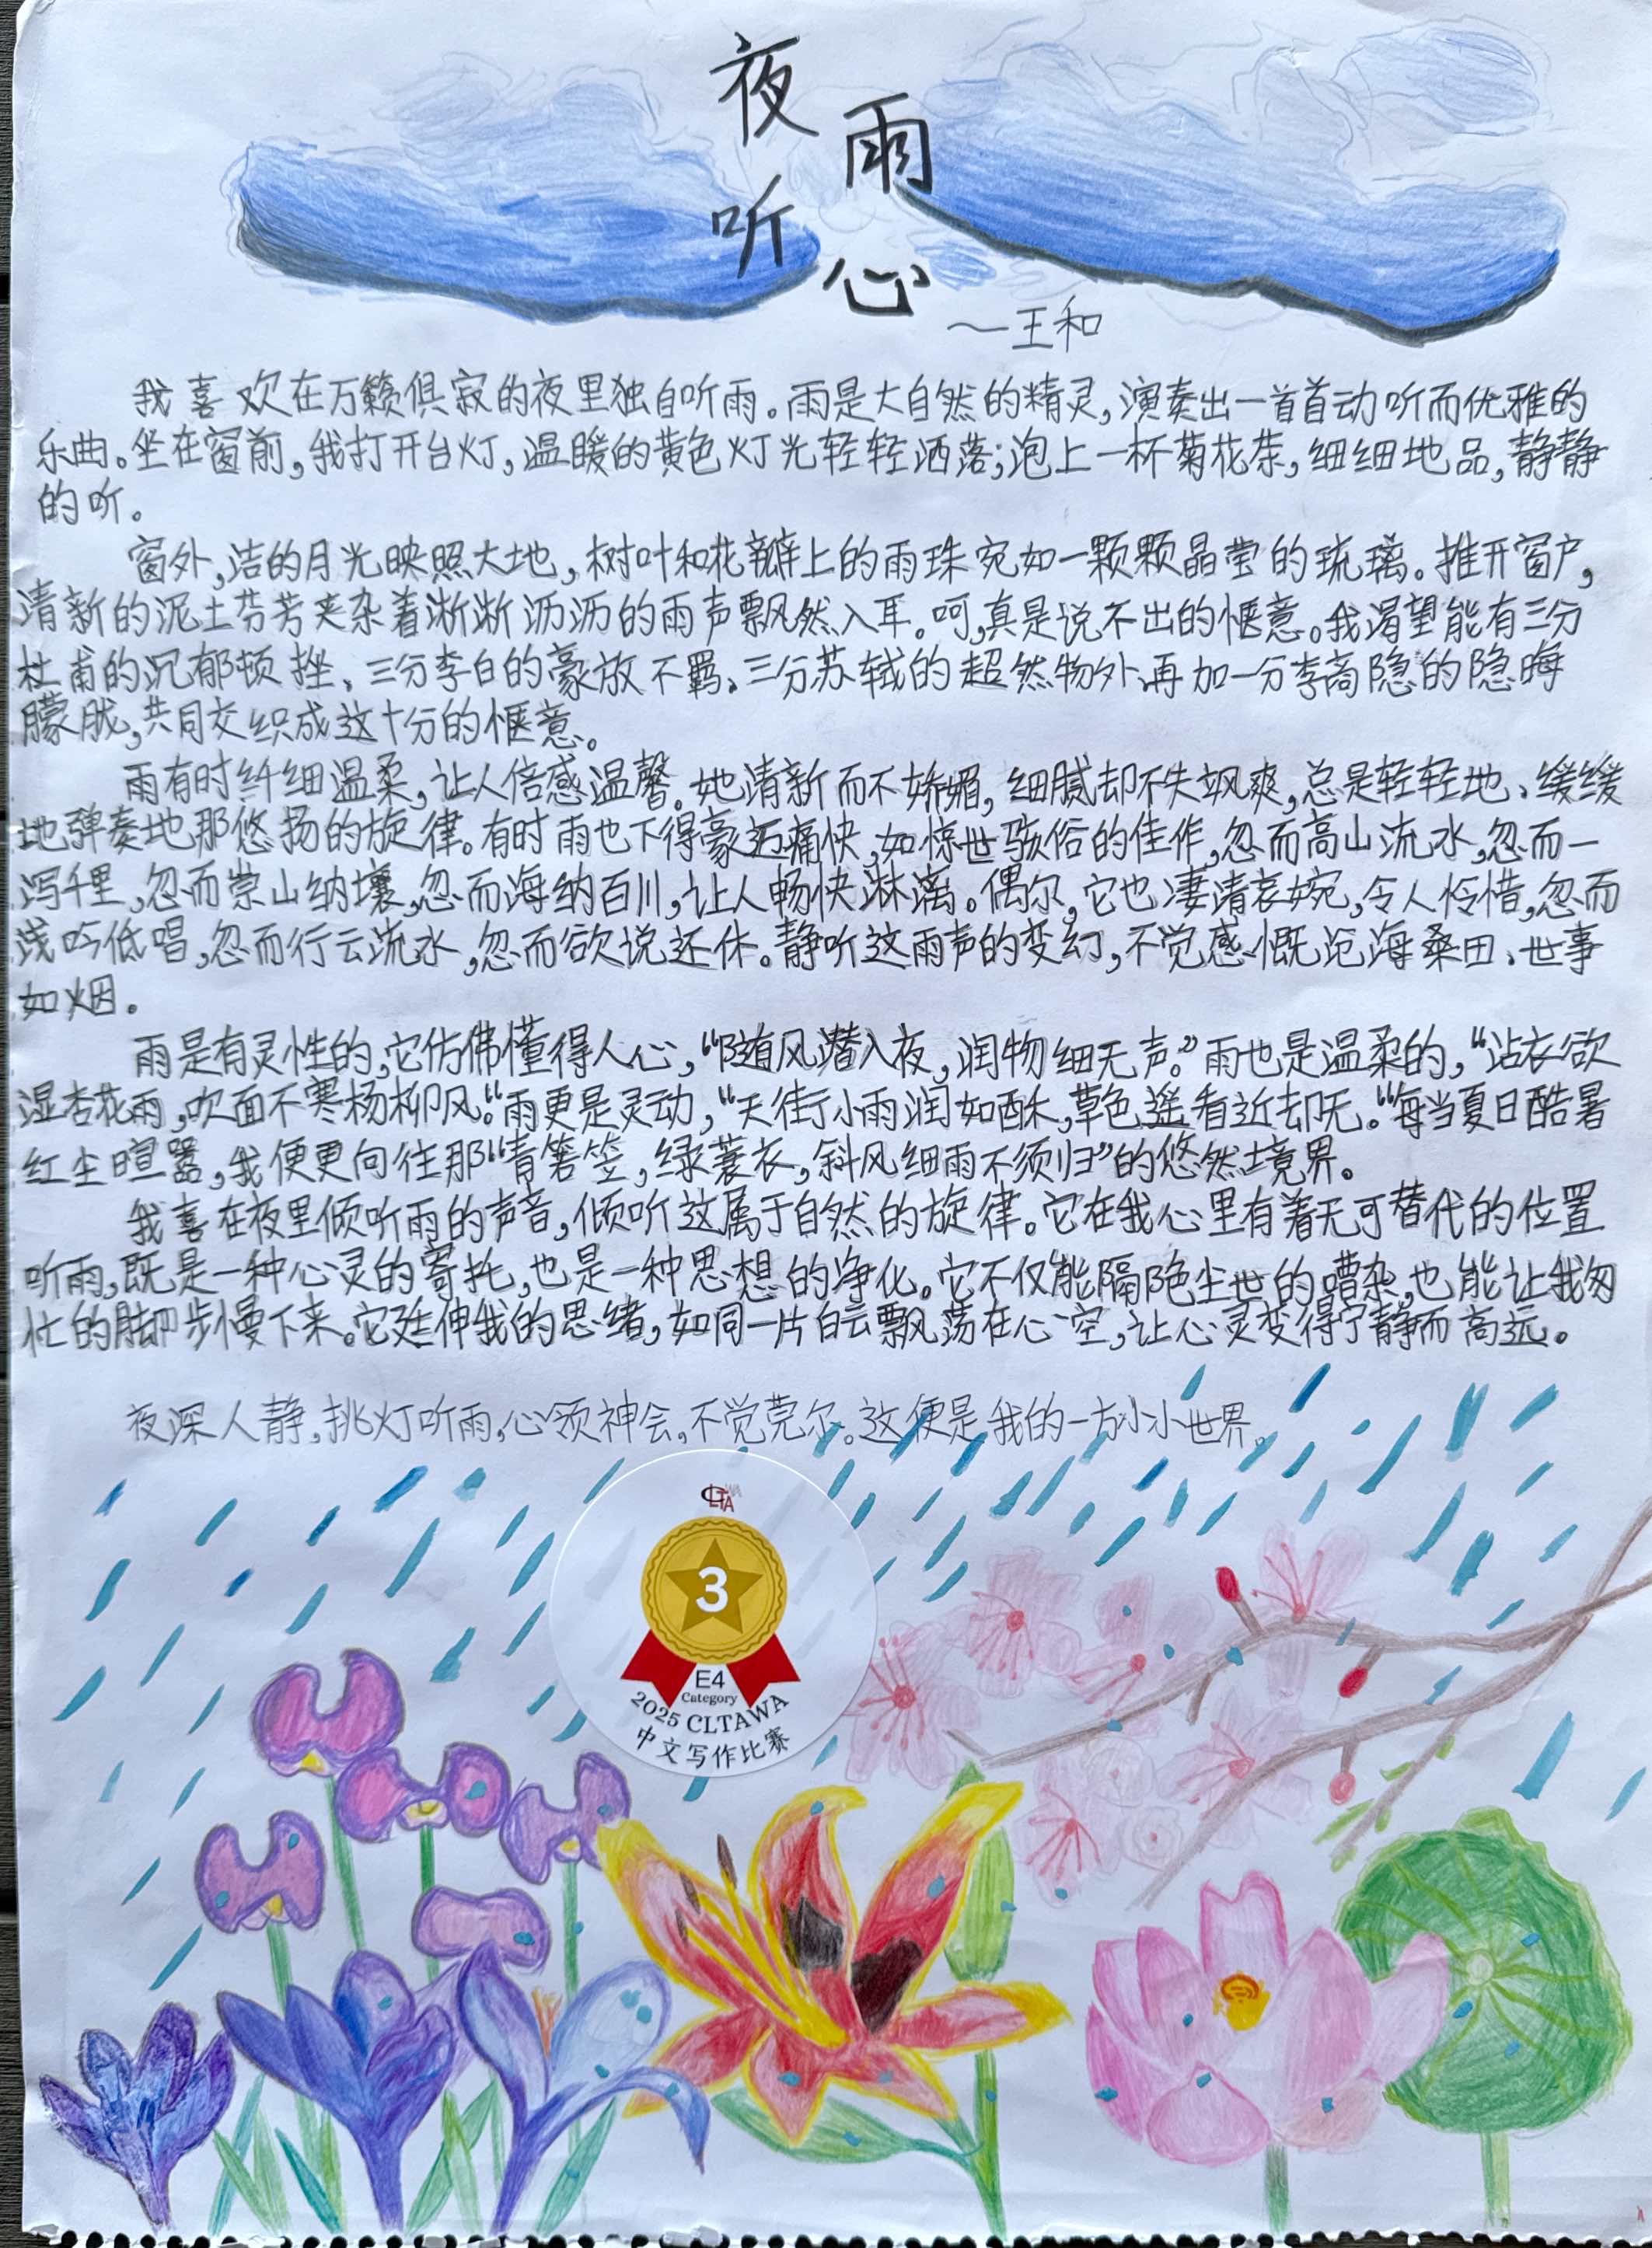 夜雨听心
——王和
我喜欢在万籁俱寂的夜里独自听雨。雨是大自然的精灵,演奏出一首首动听而优雅的
乐曲。坐在窗前,我打开台灯,温暖的黄色灯光轻轻洒落;泡上一杯菊花茶,细细地品,静静
的听。
窗外,洁的月光映照大地,树叶和花瓣上的雨珠宛如一颗颗晶莹的琉璃。推开窗户,
清新的泥土芬芳夹杂着淅淅沥沥的雨声飘然入耳。呵,真是说不出的惬意。我渴望能有三分
杜甫的沉郁顿挫、三分李白的豪放不羁、三分苏轼的超然物外、再加一分李商隐的隐晦
朦胧,共同交织成这十分的惬意。
雨有时纤细温柔,让人倍感温馨。她清新而不娇媚,细腻却不失飒爽,总是轻轻地、缓缓
地弹奏地那悠扬的旋律。有时雨也下得豪迈痛快,如惊世骇俗的佳作,忽而高山流水,忽而一
泻千里,忽而崇山纳壤,忽而海纳百川,让人畅快淋漓。偶尔,它也凄清哀婉,令人怜惜,忽而
浅吟低唱,忽而行云流水,忽而欲说还休。静听这雨声的变幻,不觉感慨沧海桑田、世事
如烟。
雨是有灵性的,它仿佛懂得人心,“随风潜入夜,润物细无声。”雨也是温柔的,“沾衣欲
湿杏花雨,吹面不寒杨柳风。“雨更是灵动,“天街小雨润如酥,草色遥看近却无。“每当夏日酷暑
红尘喧嚣,我便更向往那“青箬笠,绿蓑衣,斜风细雨不须归”的悠然境界。
我喜在夜里倾听雨的声音,倾听这属于自然的旋律。它在我心里有着无可替代的位置
听雨,既是一种心灵的寄托,也是一种思想的净化。它不仅能隔绝尘世的嘈杂,也能让我匆
忙的脚步慢下来。它延伸我的思绪,如同一片白云飘荡在心空,让心灵变得宁静而高远。
夜深人静,挑灯听雨,心领神会,不觉莞尔。这便是我的一方小小世界。
CLTAWA
3
E4
Category
2025 CLTAWA
中文写作比赛